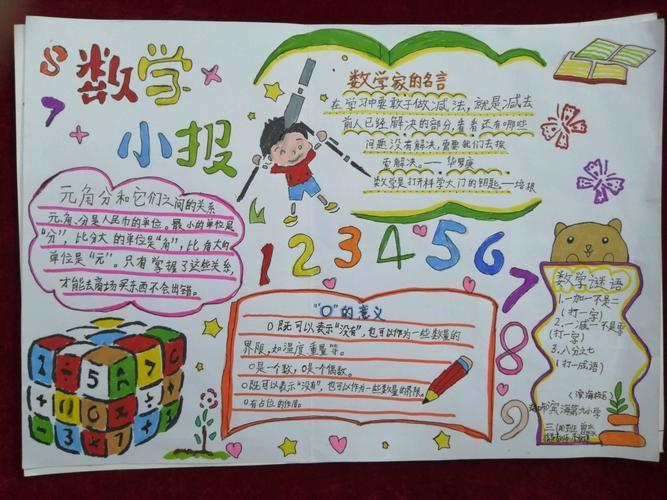 数学
小报
数学家的名言
在学习中要敢于做减法,就是减去
前人已经解决的部分,看看还有哪些
问题没有解决,需要我们去探
索解决。——华罗庚
数学是打开科学大门的钥匙——培根
元角分和它们之间的关系
元、角、分是人民币的单位。最小的单位是
“分”,比分大的单位是“角”,比角大的
单位是“元”。只有掌握了这些关系,
才能去商场买东西不会出错。
1 2 3 4 5 6 7 8 9
“0”的意义
0既可以表示“没有”,也可以作为一些数量的
界限,如温度重量等。
0是一个数,0是个偶数。
0既可以表示“没有”,也可以作为一些数量的界限。
0有占位的作用。
数学谜语
1.一加一不是二
(打一字)
2.一减一不是零
(打一字)
3.八分之七
(打一成语)
(滨海校区)
滨海第九小学
8
7
÷ 5